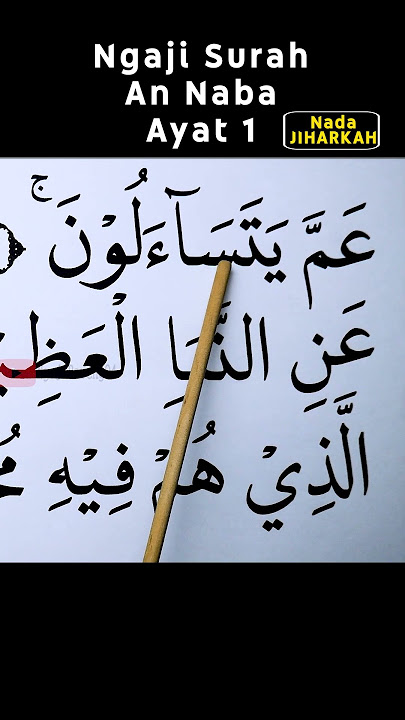 Ngaji Surah
An Naba
Ayat 1
Nada
JIHARKAH
عَمَّ يَتَسَآءَلُوْنَۚ
عَنِ النَّبَاِ الْعَظِيْ
الَّذِيْ هُمْ فِيْهِ